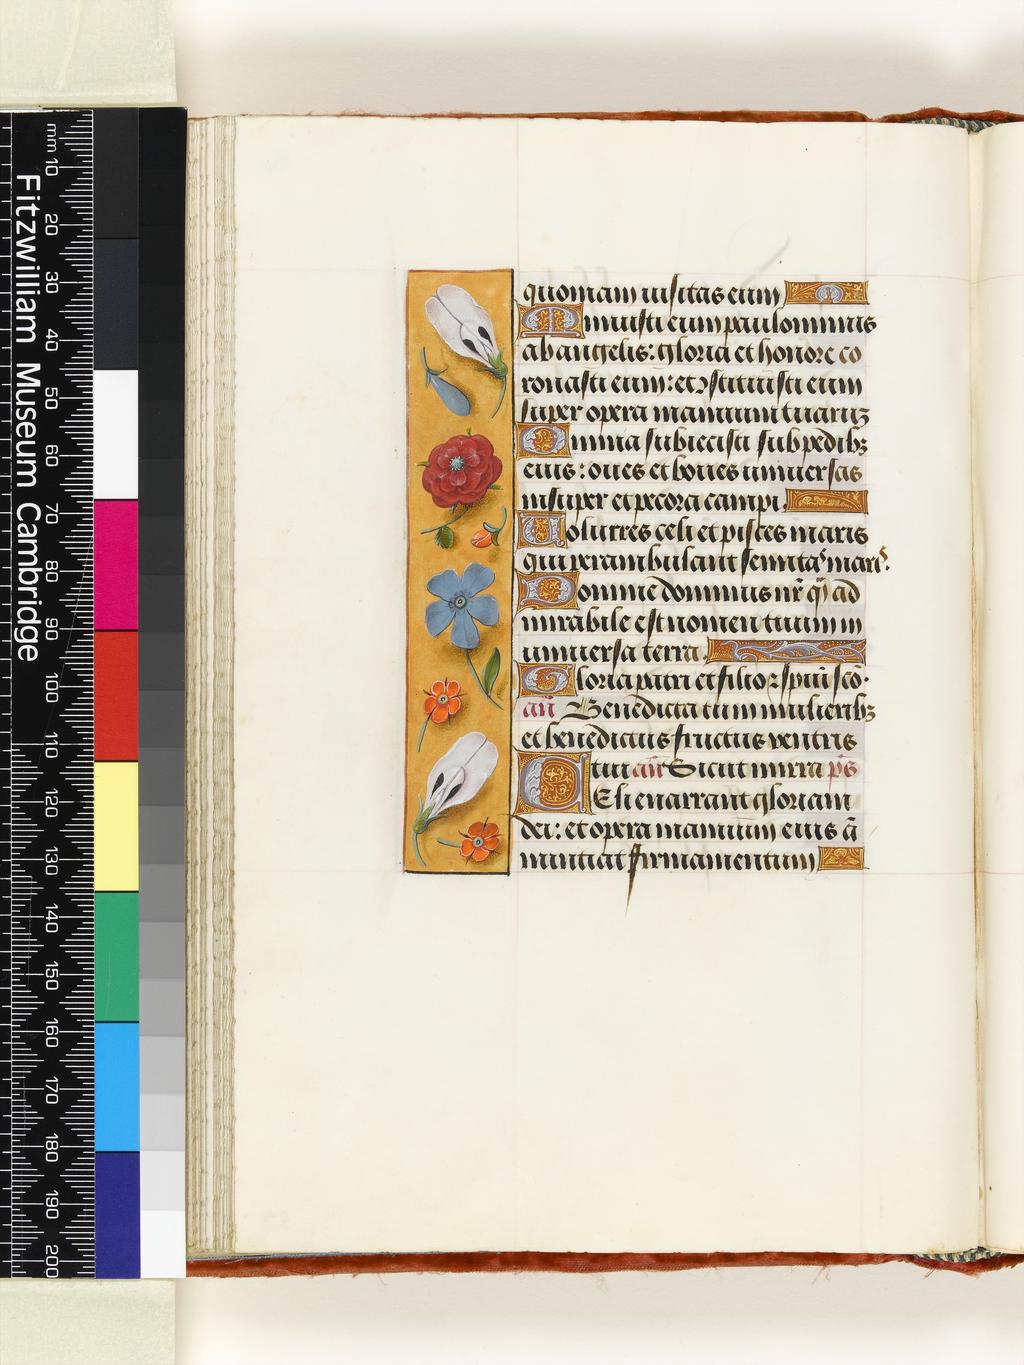 Fitzwilliam Museum Cambridge
mm 10 20 30 40 50 60 70 80 90 100 110 120 130 140 150 160 170 180 190 200
quoniam uisitas eum
Minuisti eum paulominus
ab angelis: gloria et honore co
ronasti eum: et ꝯstituisti eum
super opera manuum tuaruꝫ
Omnia subiecisti sub pedibꝫ
eius: oues et boues uniuersas
insuper et pecora campi.
Uolucres celi et pisces maris
qui perambulant semitas maris.
Domine dominus nr̄ q̄ ad
mirabile est nomen tuum in
uniuersa terra.
Gloria patri et filio ⁊ spiui sc̄o.
an̄ Benedicta tu in mulieribꝫ
et benedictus fructus uentris
tui an̄ Sicut mirra ps̄
Celi enarrant gloriam
dei: et opera manuum eius ā
nuntiat firmamentum